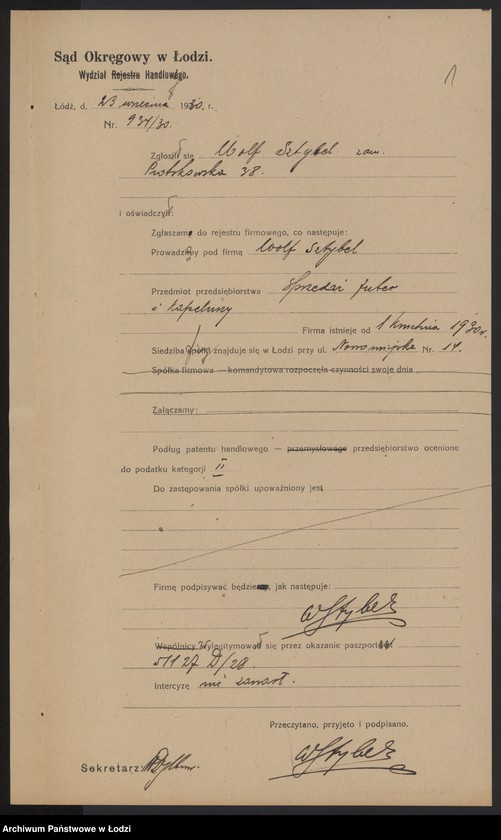 Sąd Okręgowy w Łodzi.
Wydział Rejestru Handlowego.
1
Łódź, d. 23 września 1930. r.
Nr. 937/30.
Zgłosił się Wolf Sztybel zam.
Piotrkowska 38.
i oświadczył:
Zgłaszam do rejestru firmowego, co następuje:
Prowadzimy pod firmą Wolf Sztybel
Przedmiot przedsiębiorstwa sprzedaż futer
i kapeluszy
Firma istnieje od 1 kwietnia 1930 r.
Siedziba znajduje się w Łodzi przy ul. Nowomiejska Nr. 14.
Spółka firmowa — komandytowa rozpoczęła czynności swoje dnia
Załączamy:
Podług patentu handlowego — przemysłowego przedsiębiorstwo ocenione
do podatku kategorji II
Do zastępowania spółki upoważniony jest
Firmę podpisywać będzie, jak następuje:
WSztybel
Wspólnicy Wylegitymował się przez okazanie paszportu
51127 D/28.
Intercyzę nie zawarł.
Przeczytano, przyjęto i podpisano.
WSztybel
Sekretarz:
Archiwum Państwowe w Łodzi